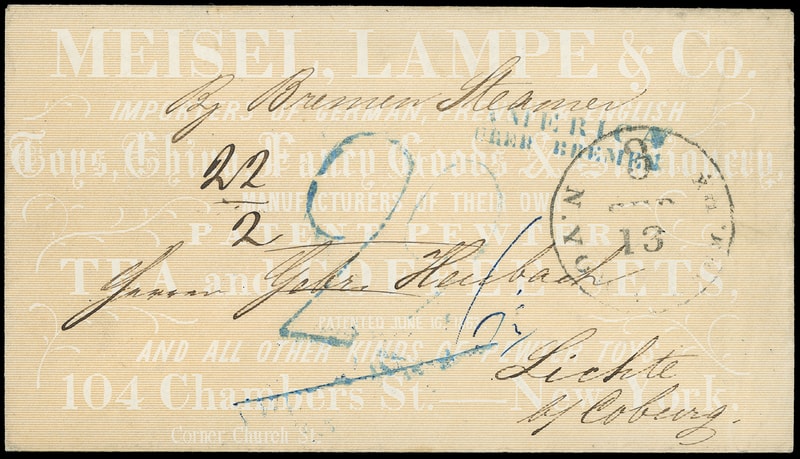 MEISEL, LAMPE & Co.
By Bremen Steamer
IMPORTERS OF GERMAN, FRENCH & ENGLISH
AMERICA
UBER BREMEN
Toys, China, Fancy Goods & Stationery,
22
2
2
N.Y.
8
13
MANUFACTURERS OF THEIR OWN
PATENT PEWTER
TEA and TOILET SETS.
Herren Gebr. Heubach
PATENTED JUNE
AND ALL OTHER KINDS OF TOYS
Lichte
104 Chambers St.—New York.
b/ Coburg.
Corner Church St.